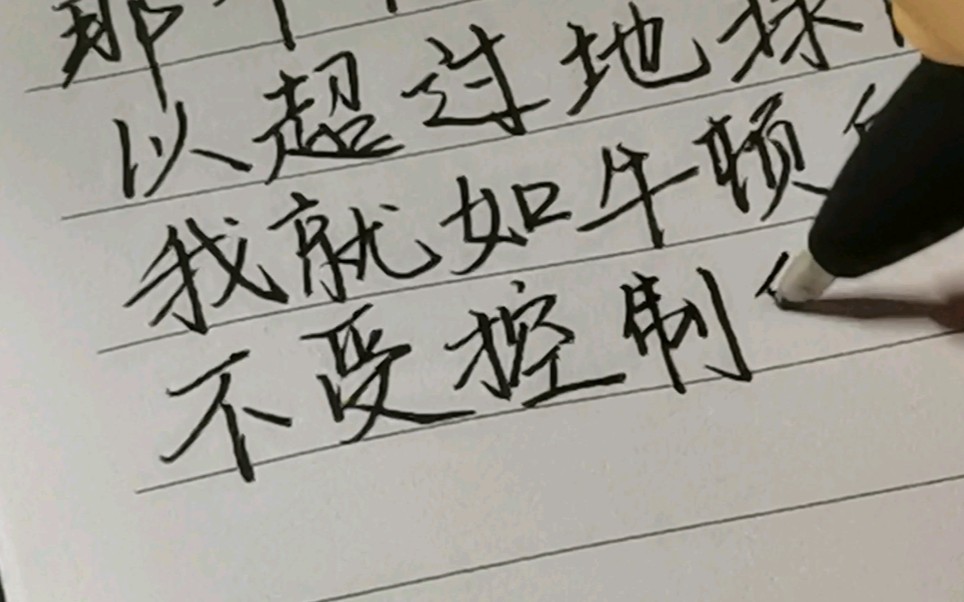 那
以超过地球
我就如牛顿
不受控制